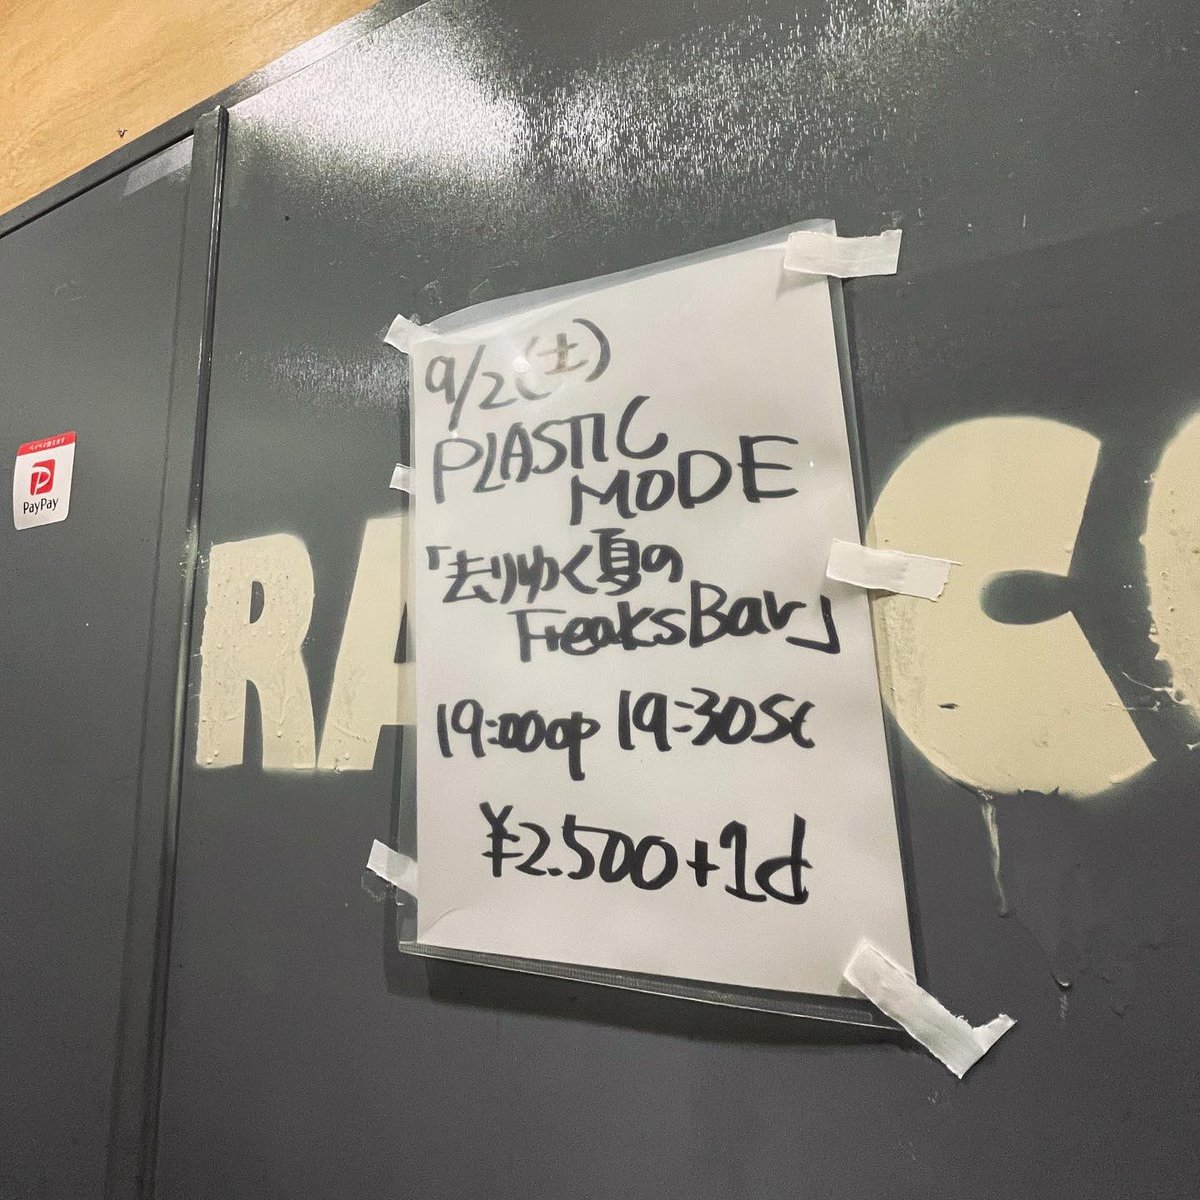 9/2(土)
PLASTIC
MODE
「去りゆく夏の
FreaksBar」
19:00op 19:30st
¥2.500+1d
ペイペイ使えます
PayPay
RA CO